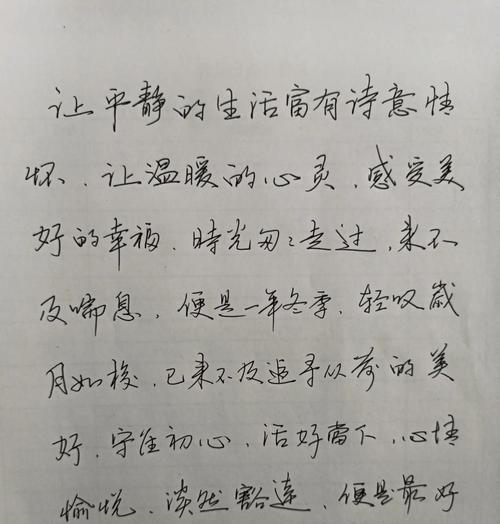 让平静的生活富有诗意情
怀、让温暖的心灵、感受美
好的幸福、時光匆匆走过,来不
及喘息、便是一年冬季、轻叹岁
月如梭、已来不及追寻从前的美
好、守住初心、活好当下、心情
愉悦、淡然豁达、便是最好